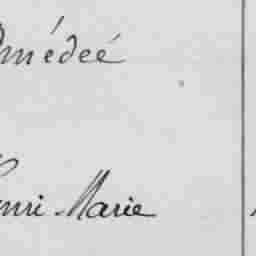 Amédeé
Henri Marie